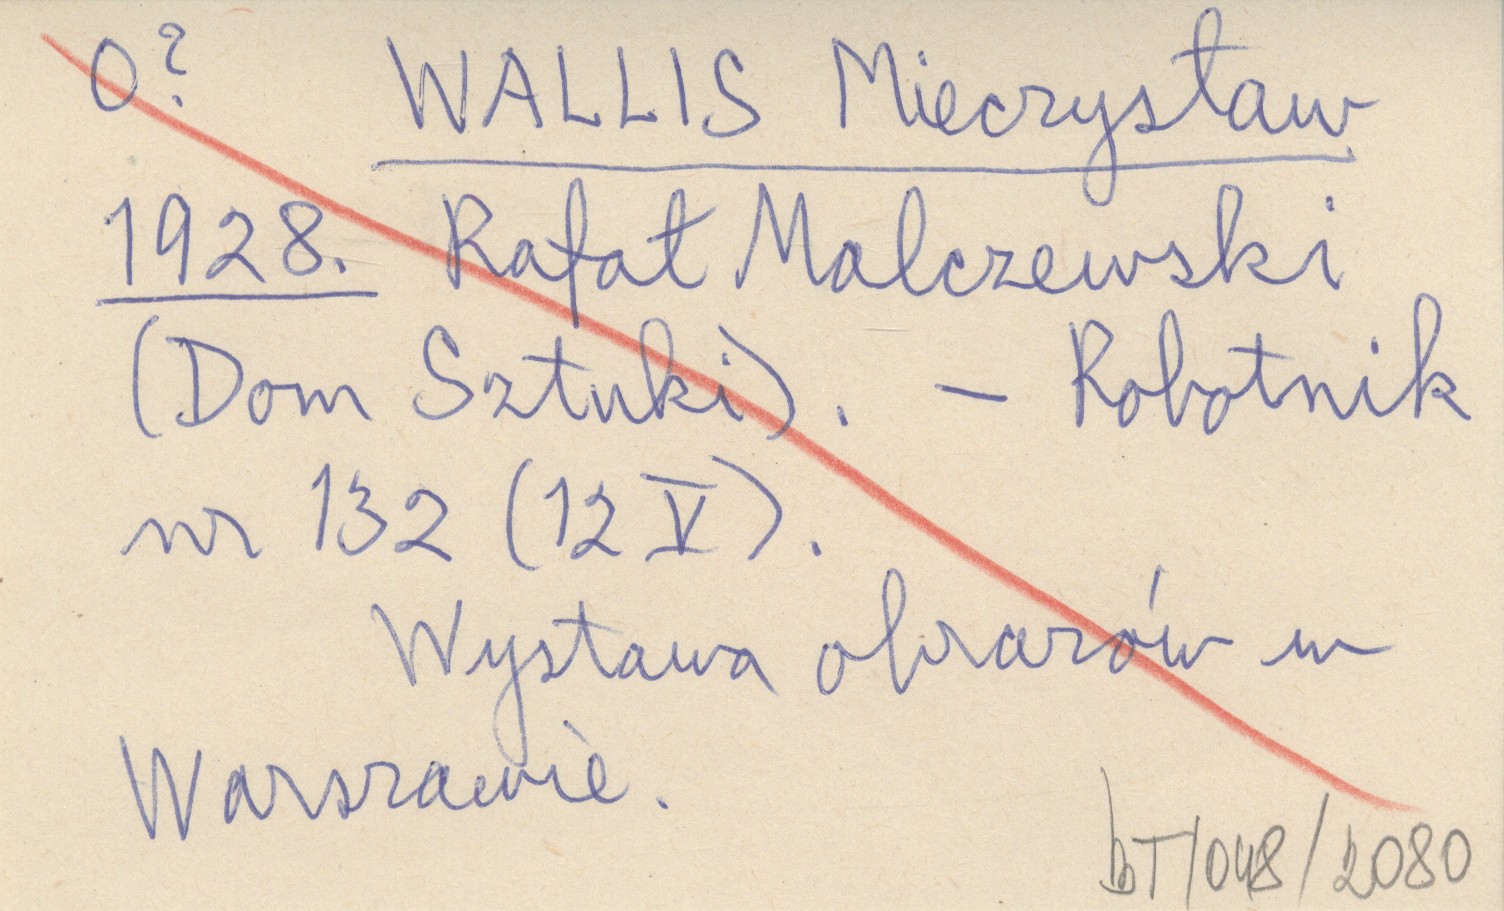 0? WALLIS Mieczysław
1928. Rafał Malczewski
(Dom Sztuki). — Robotnik
nr 132 (12 V).
Wystawa obrazów w
Warszawie.
bT/048/2080